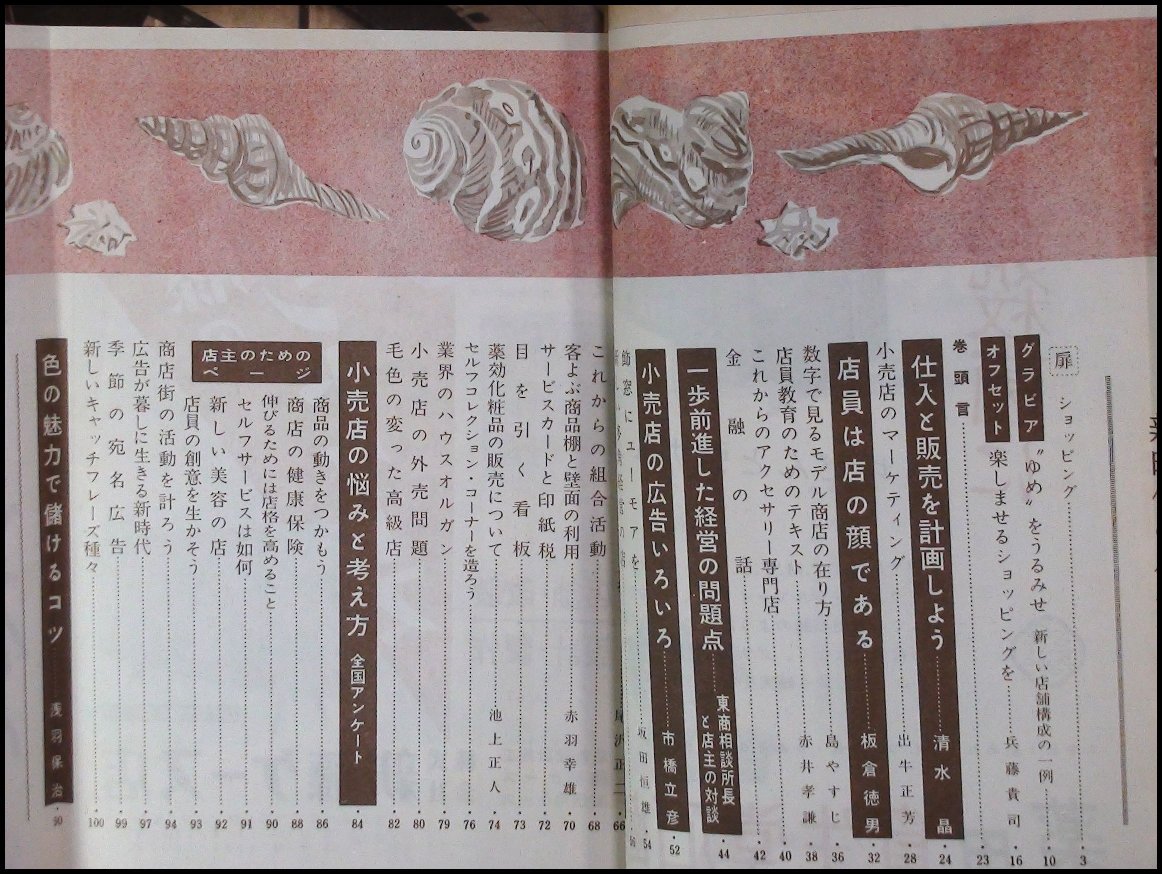 扉 ショッピング 3
グラビア “ゆめ”をうるみせ 新しい店舗構成の一例 10
オフセット 楽しませるショッピングを 兵藤貴司 16
巻頭言 23
仕入と販売を計画しよう 清水晶 24
小売店のマーケティング 出牛正芳 28
店員は店の顔である 板倉徳男 32
数字で見るモデル商店の在り方 島やすじ 36
店員教育のためのテキスト 赤井孝謙 38
これからのアクセサリー専門店 40
金融の話 42
一歩前進した経営の問題点 東商相談所長と店主の対談 44
小売店の広告いろいろ 市橋立彦 52
飾窓にユーモアを 坂田恒雄 54
66
これからの組合活動 68
客よぶ商品棚と壁面の利用 赤羽幸雄 70
サービスカードと印紙税 72
目を引く看板 73
薬効化粧品の販売について 池上正人 74
セルフコレクション・コーナーを造ろう 76
業界のハウスオルガン 79
小売店の外売問題 80
毛色の変った高級店 82
小売店の悩みと考え方 全国アンケート 84
店主のためのページ
商品の動きをつかもう 86
商店の健康保険 88
伸びるためには店格を高めること 90
セルフサービスは如何 91
新しい美容の店 92
店員の創意を生かそう 93
商店街の活動を計ろう 94
広告が暮しに生きる新時代 97
季節の宛名広告 99
新しいキャッチフレーズ種々 100
色の魅力で儲けるコツ 浅羽保治 90